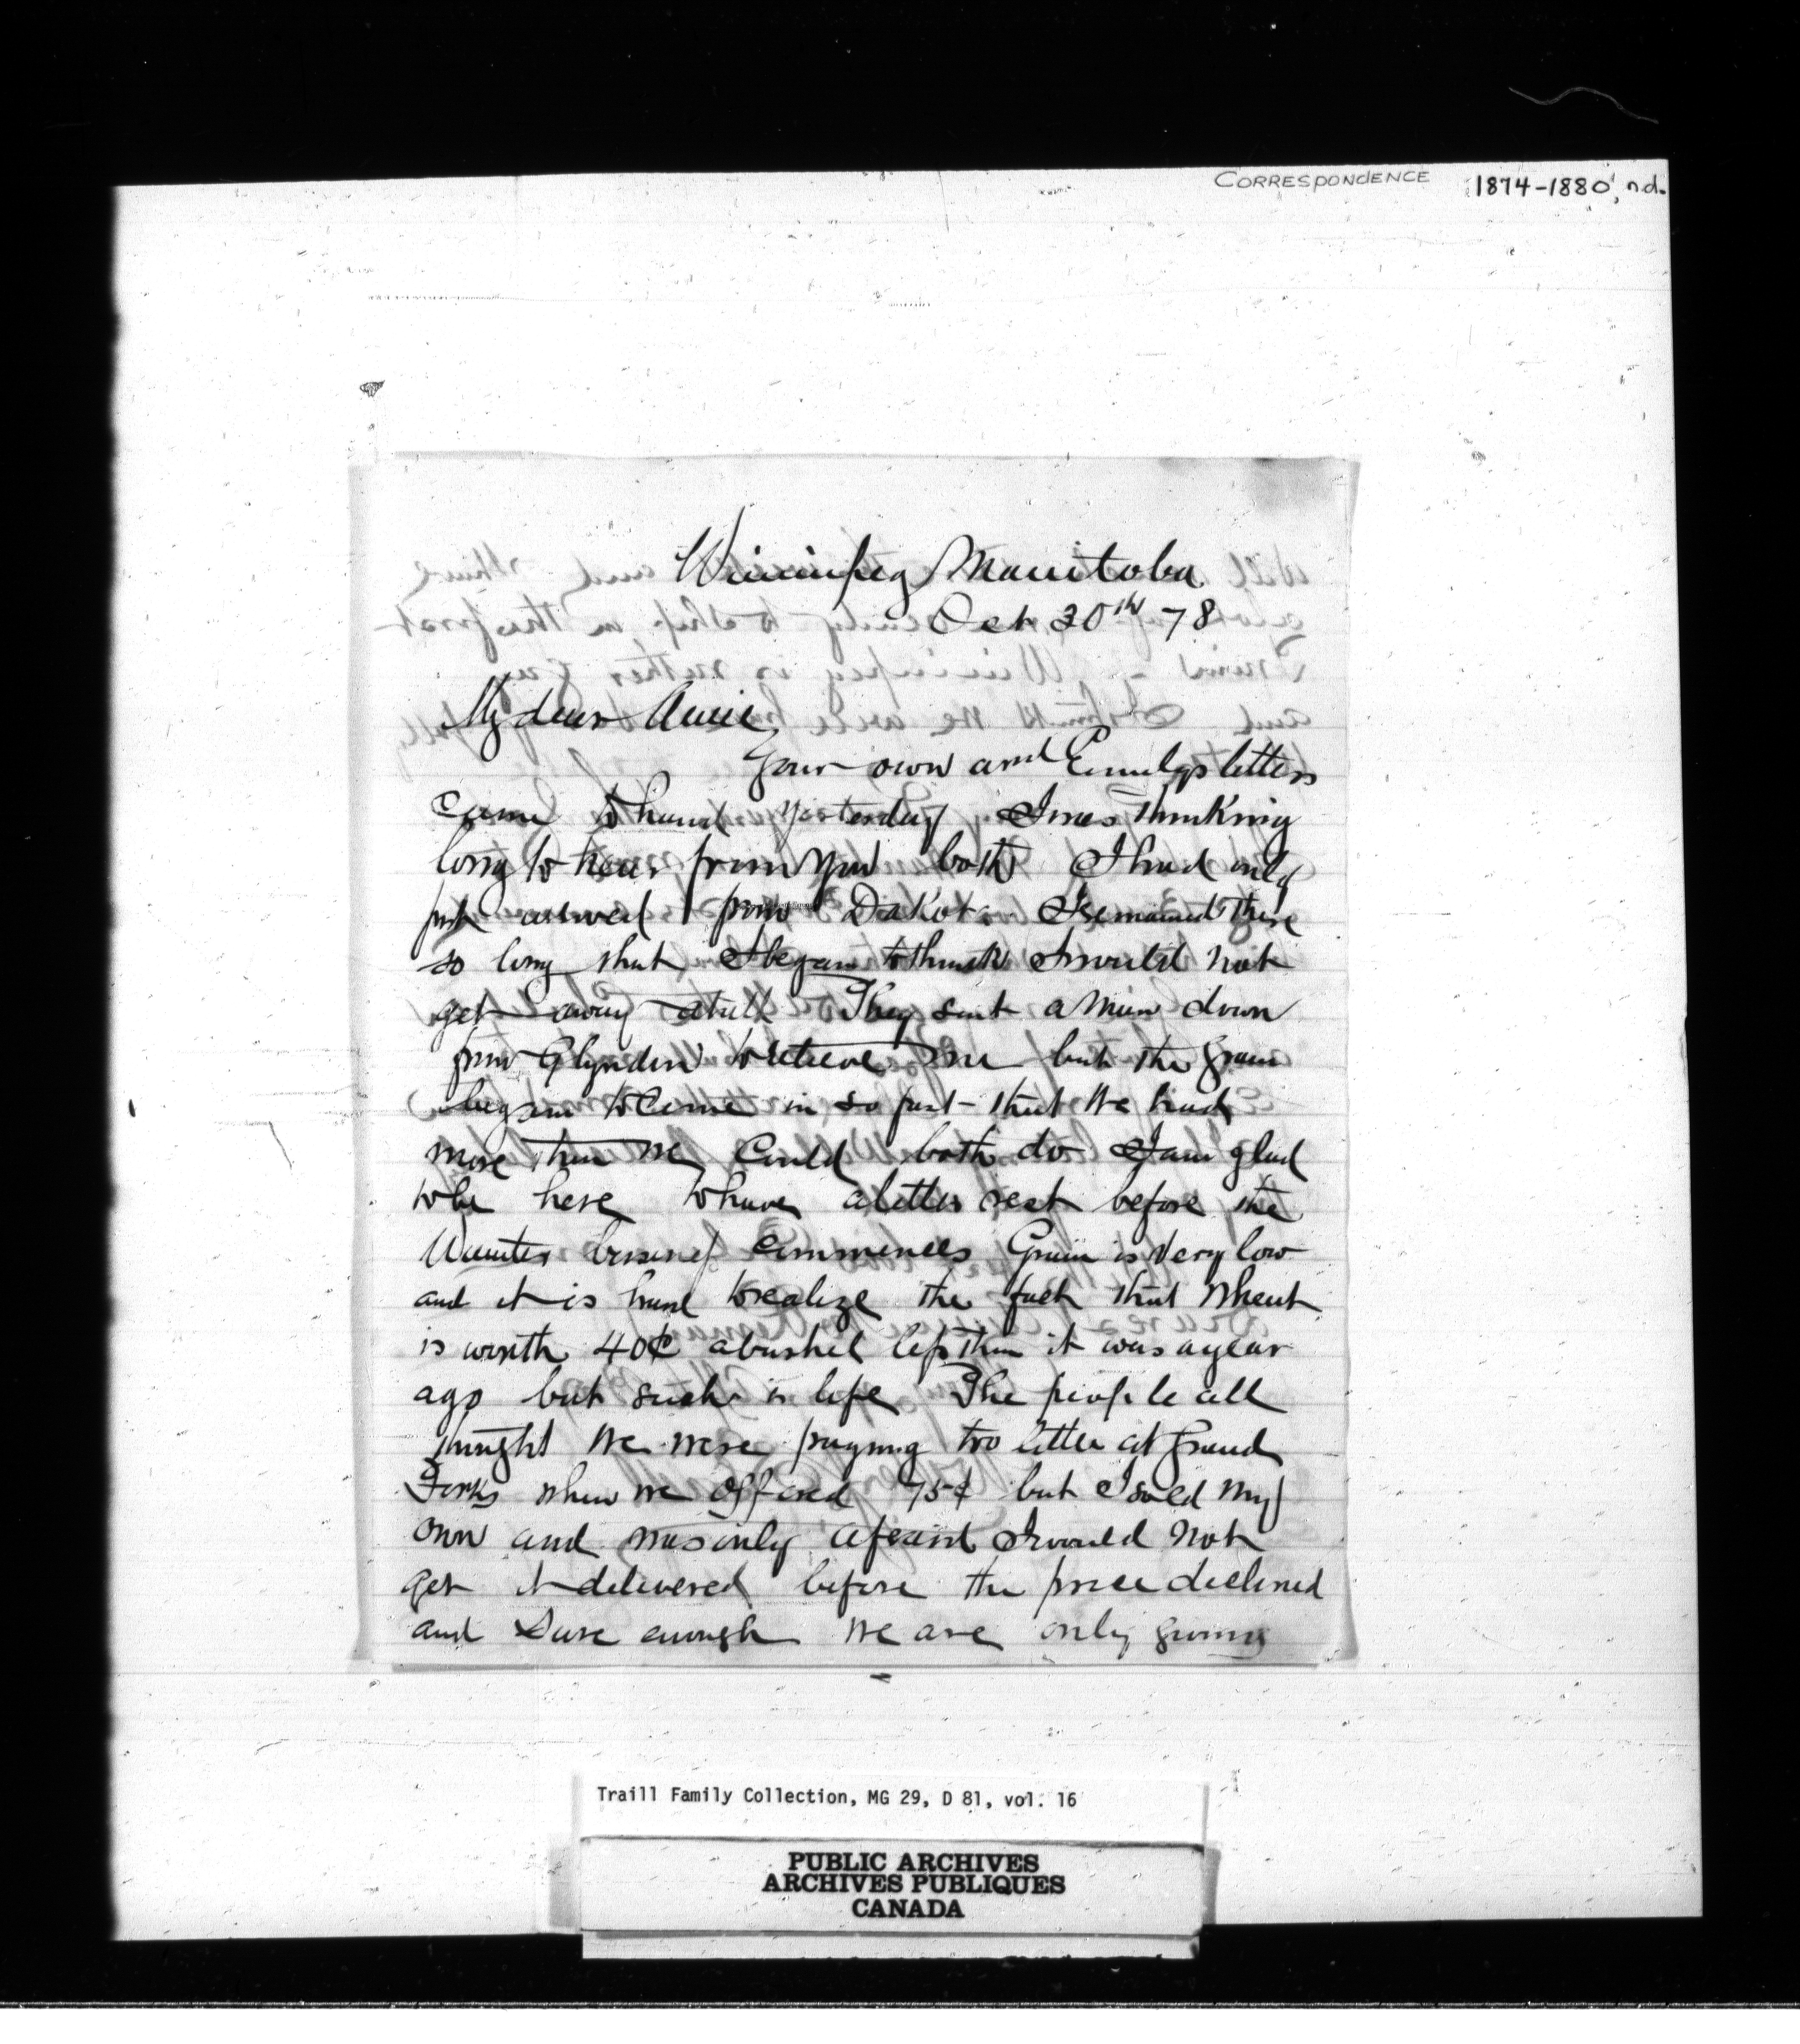 CORRESPONDENCE 1874-1880, n.d.
Winnipeg Manitoba
Oct 20th 78
My dear Annie
Your own and Emilys letters
came to hand yesterday I was thinking
long to hear from you both I had only
just arrived from Dakota I remained there
so long that I began to think I would not
get away atall They sent a man down
from Glyndon to relieve me but the grain
began to come in so fast that we had
more than we could both do I am glad
to be here to have a little rest before the
Winter business commences Grain is very low
and it is hard to realize the fact that wheat
is worth 40¢ a bushel less than it was a year
ago but such is life The people all
thought we were paying too little at Grand
Forks when we offered 75¢ but I sold my
own and was only afraid I would not
get it delivered before the price declined
and sure enough we are only giving
Traill Family Collection, MG 29, D 81, vol. 16
PUBLIC ARCHIVES
ARCHIVES PUBLIQUES
CANADA